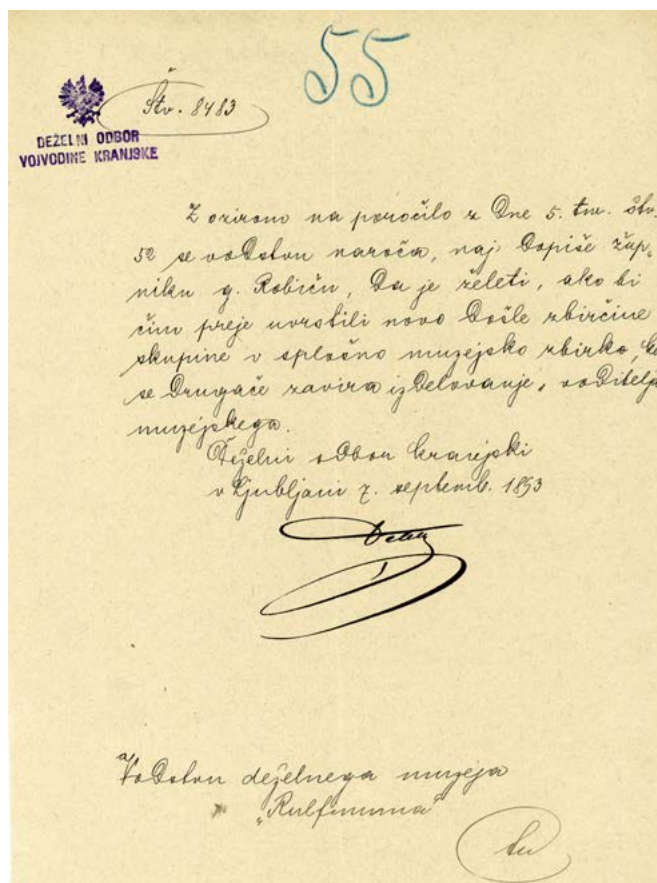 55
Štv. 8483
DEŽELNI ODBOR
VOJVODINE KRANJSKE
Z ozirom na poročilo z dne 5. tm. štv.
52 se vodstvu naroča, naj dopiše žup-
niku g. Robiču, da je želeti, ako bi
čim preje uvrstili novo došle zbirčine
skupine v splošno muzejsko zbirko, ker
se drugače zavira izdelovanje „voditelja
muzejskega.
Deželni odbor kranjski
v Ljubljani 7. septemb. 1893
Vodstvu deželnega muzeja
„Rudolfinuma"
tu